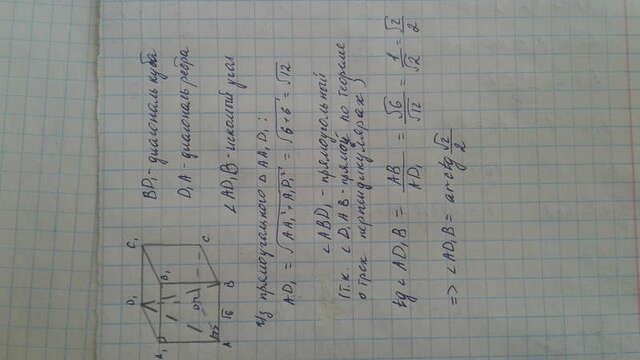 BD₁ - диагональ куба
D₁A - диагональ ребра
∠AD₁B - искомый угол
A₁
D₁
C₁
B₁
A
√6
B
C
Из прямоугольного △ AA₁D₁:
AD₁ = √(AA₁² + A₁D₁²) = √(6+6) = √12
∠ABD₁ - прямоугольный
(т.к. ∠D₁AB - прямой по теореме
о трех перпендикулярах)
tg ∠AD₁B = AB/AD₁ = √6/√12 = 1/√2 = √2/2
=> ∠AD₁B = arctg √2/2